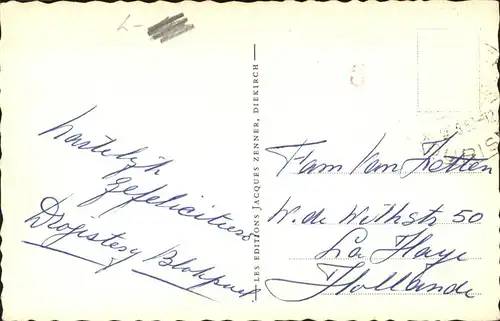 L-
hartelijk
gefeliciteerd
Drogistery Blokpoel
LES EDITIONS JACQUES ZENNER, DIEKIRCH
Fam Van Ketten
W. de Withstr 50
La Haye
Hollande